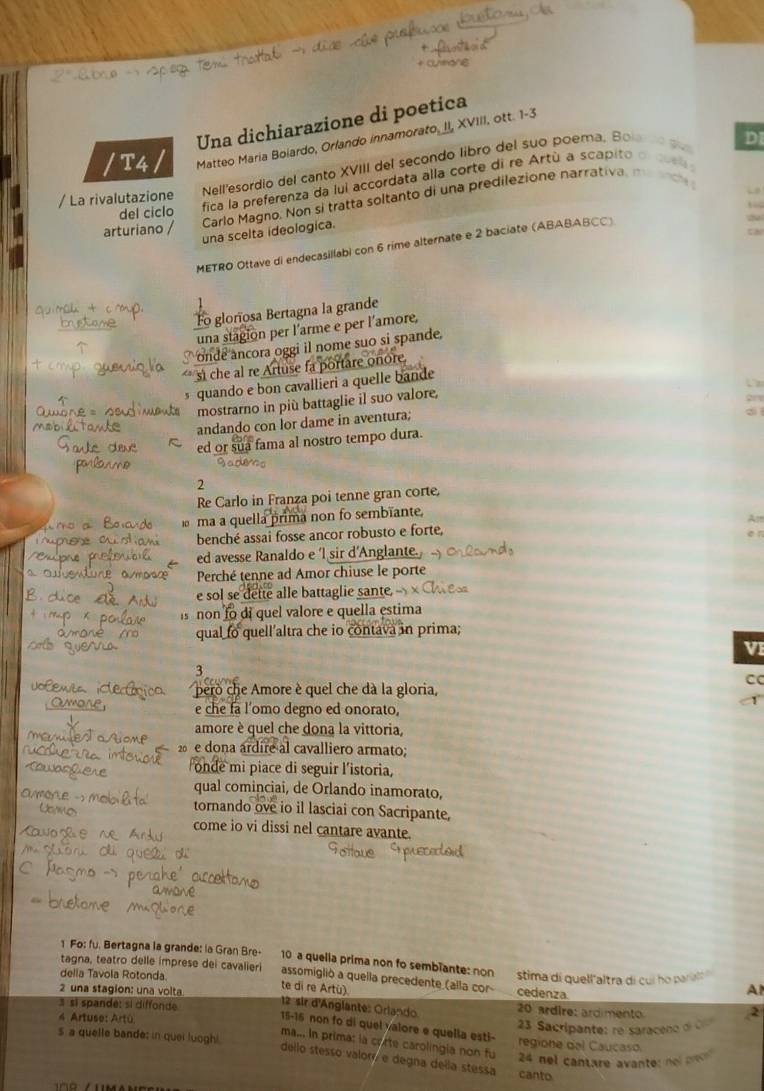 2° libro → spiega temi trattati → dice che preferisce bretoni, da
+ fantasia
+ amore
/ T4 /
Una dichiarazione di poetica
Matteo Maria Boiardo, Orlando innamorato, II, XVIII, ott. 1-3
/ La rivalutazione
del ciclo
arturiano /
Nell'esordio del canto XVIII del secondo libro del suo poema, Boiardo
fica la preferenza da lui accordata alla corte di re Artù a scapito di quella
Carlo Magno. Non si tratta soltanto di una predilezione narrativa, ma anche
una scelta ideologica.
METRO Ottave di endecasillabi con 6 rime alternate e 2 baciate (ABABABCC).
1
Fo glorïosa Bertagna la grande
una stagion per l'arme e per l'amore,
onde ancora oggi il nome suo si spande,
sì che al re Artuse fa portare onore,
5 quando e bon cavallieri a quelle bande
mostrarno in più battaglie il suo valore,
andando con lor dame in aventura;
ed or sua fama al nostro tempo dura.
quindi + imp.
bretone
+ imp. guerriglia
amore = sentimento
nobilitante
2
Re Carlo in Franza poi tenne gran corte,
10 ma a quella prima non fo sembïante,
benché assai fosse ancor robusto e forte,
ed avesse Ranaldo e 'l sir d'Anglante. → Orlando
Perché tenne ad Amor chiuse le porte
e sol se dette alle battaglie sante, → x Chiesa
15 non fo di quel valore e quella estima
qual fo quell'altra che io contava in prima;
fino a Boiardo
imprese cristiani
sempre preferibili
a avventure amorose
B. dice che Artù
+ imp x parlare
amore no
solo guerra
3
però che Amore è quel che dà la gloria,
e che fa l'omo degno ed onorato,
amore è quel che dona la vittoria,
20 e dona ardire al cavalliero armato;
onde mi piace di seguir l'istoria,
qual cominciai, de Orlando inamorato,
tornando ove io il lasciai con Sacripante,
come io vi dissi nel cantare avante.
valenza ideologica
amore
manifestazione
ricchezza interiore
cavagliere
amore → nobilità
uomo
cavoglie re Artù
migliori di quelli di
C Magno → perché accettano
amore
= bretone migliore
1 Fo: fu. Bertagna la grande: la Gran Bre-
tagna, teatro delle imprese dei cavalieri
della Tavola Rotonda.
2 una stagion: una volta.
3 si spande: si diffonde.
4 Artuse: Artù.
5 a quelle bande: in quei luoghi.
10 a quella prima non fo sembïante: non
assomigliò a quella precedente (alla cor-
te di re Artù).
12 sir d'Anglante: Orlando.
15-16 non fo di quel valore e quella esti-
ma... in prima: la corte carolingia non fu
dello stesso valore e degna della stessa
stima di quell'altra di cui ho parlato
cedenza.
20 ardire: ardimento.
23 Sacripante: re saraceno
regione del Caucaso.
24 nel cantare avante: nel
canto.